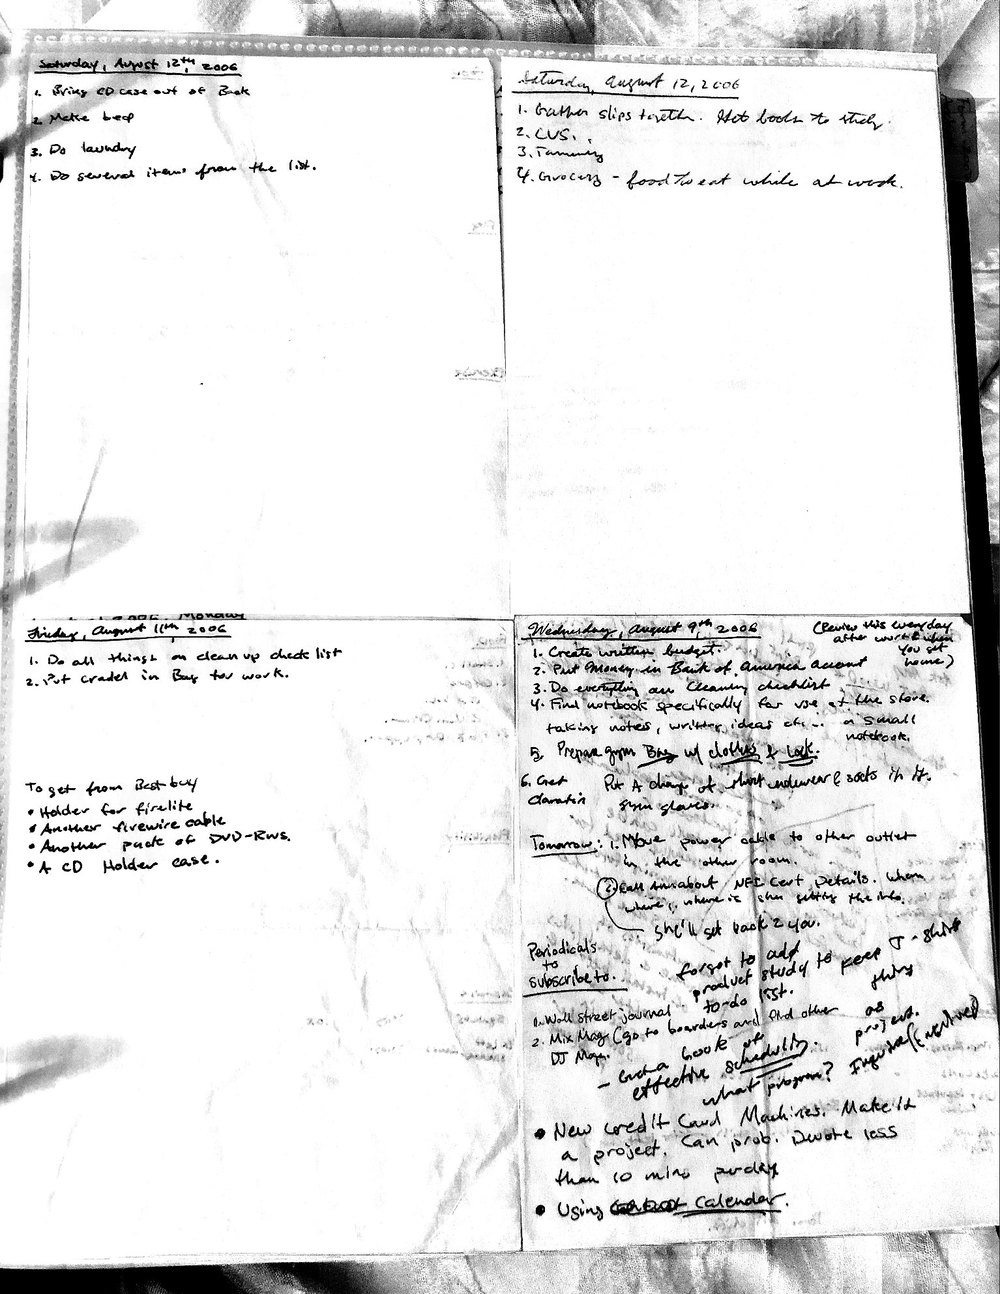 Saturday, August 12th, 2006
1. Bring CD case out of Back
2. Make bed
3. Do laundry
4. Do several items from the list.
Saturday, August 12, 2006
1. Gather slips together. Get books to study.
2. CVS.
3. Tammy
4. Grocery - food to eat while at work.
2006, Monday
Friday, August 11th, 2006
1. Do all things on clean up check list
2. Put cradel in Bag for work.
To get from Best buy
• Holder for firelite
• Another firewire cable
• Another pack of DVD-RWs.
• A CD Holder case.
Wednesday, August 9th, 2006
(Review this everyday
after work & when
you get
home)
1. Create written budget.
2. Put Money in Bank of America account
3. Do everything on Cleaning checklist
4. Find notebook specifically for use at the store.
taking notes, writing ideas a small
notebook.
5. Prepare gym Bag w/ clothes & lock.
6. Get
Put A change of short underwear & socks in it.
gym gloves.
Tomorrow: 1. Move power cable to other outlet
in the other room.
2. Call about Cert Details. When
where, where is she getting the info.
She'll get back 2 you.
Periodicals
to
subscribe to.
forgot to add
product study to keep T-shirt
to-do list. thing
as
project.
1. Wall street journal
2. Mix Mag (go to boarders and find other
DJ Mag.
- Get a book of
effective scheduling.
what program? Inquire
• New Credit Card Machines. Make it
a project. Can prob. Devote less
than 10 mins per day
• Using Calendar.